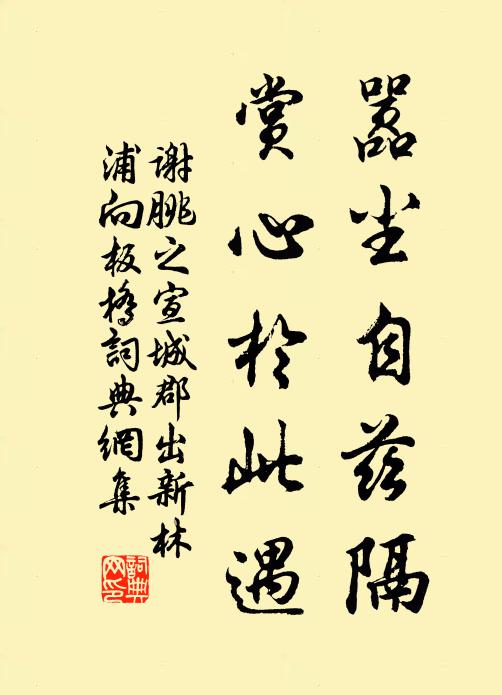 嚣尘自兹隔
赏心於此遇
谢朓之宣城郡出新林
浦向板桥词典網集
詞典
网印